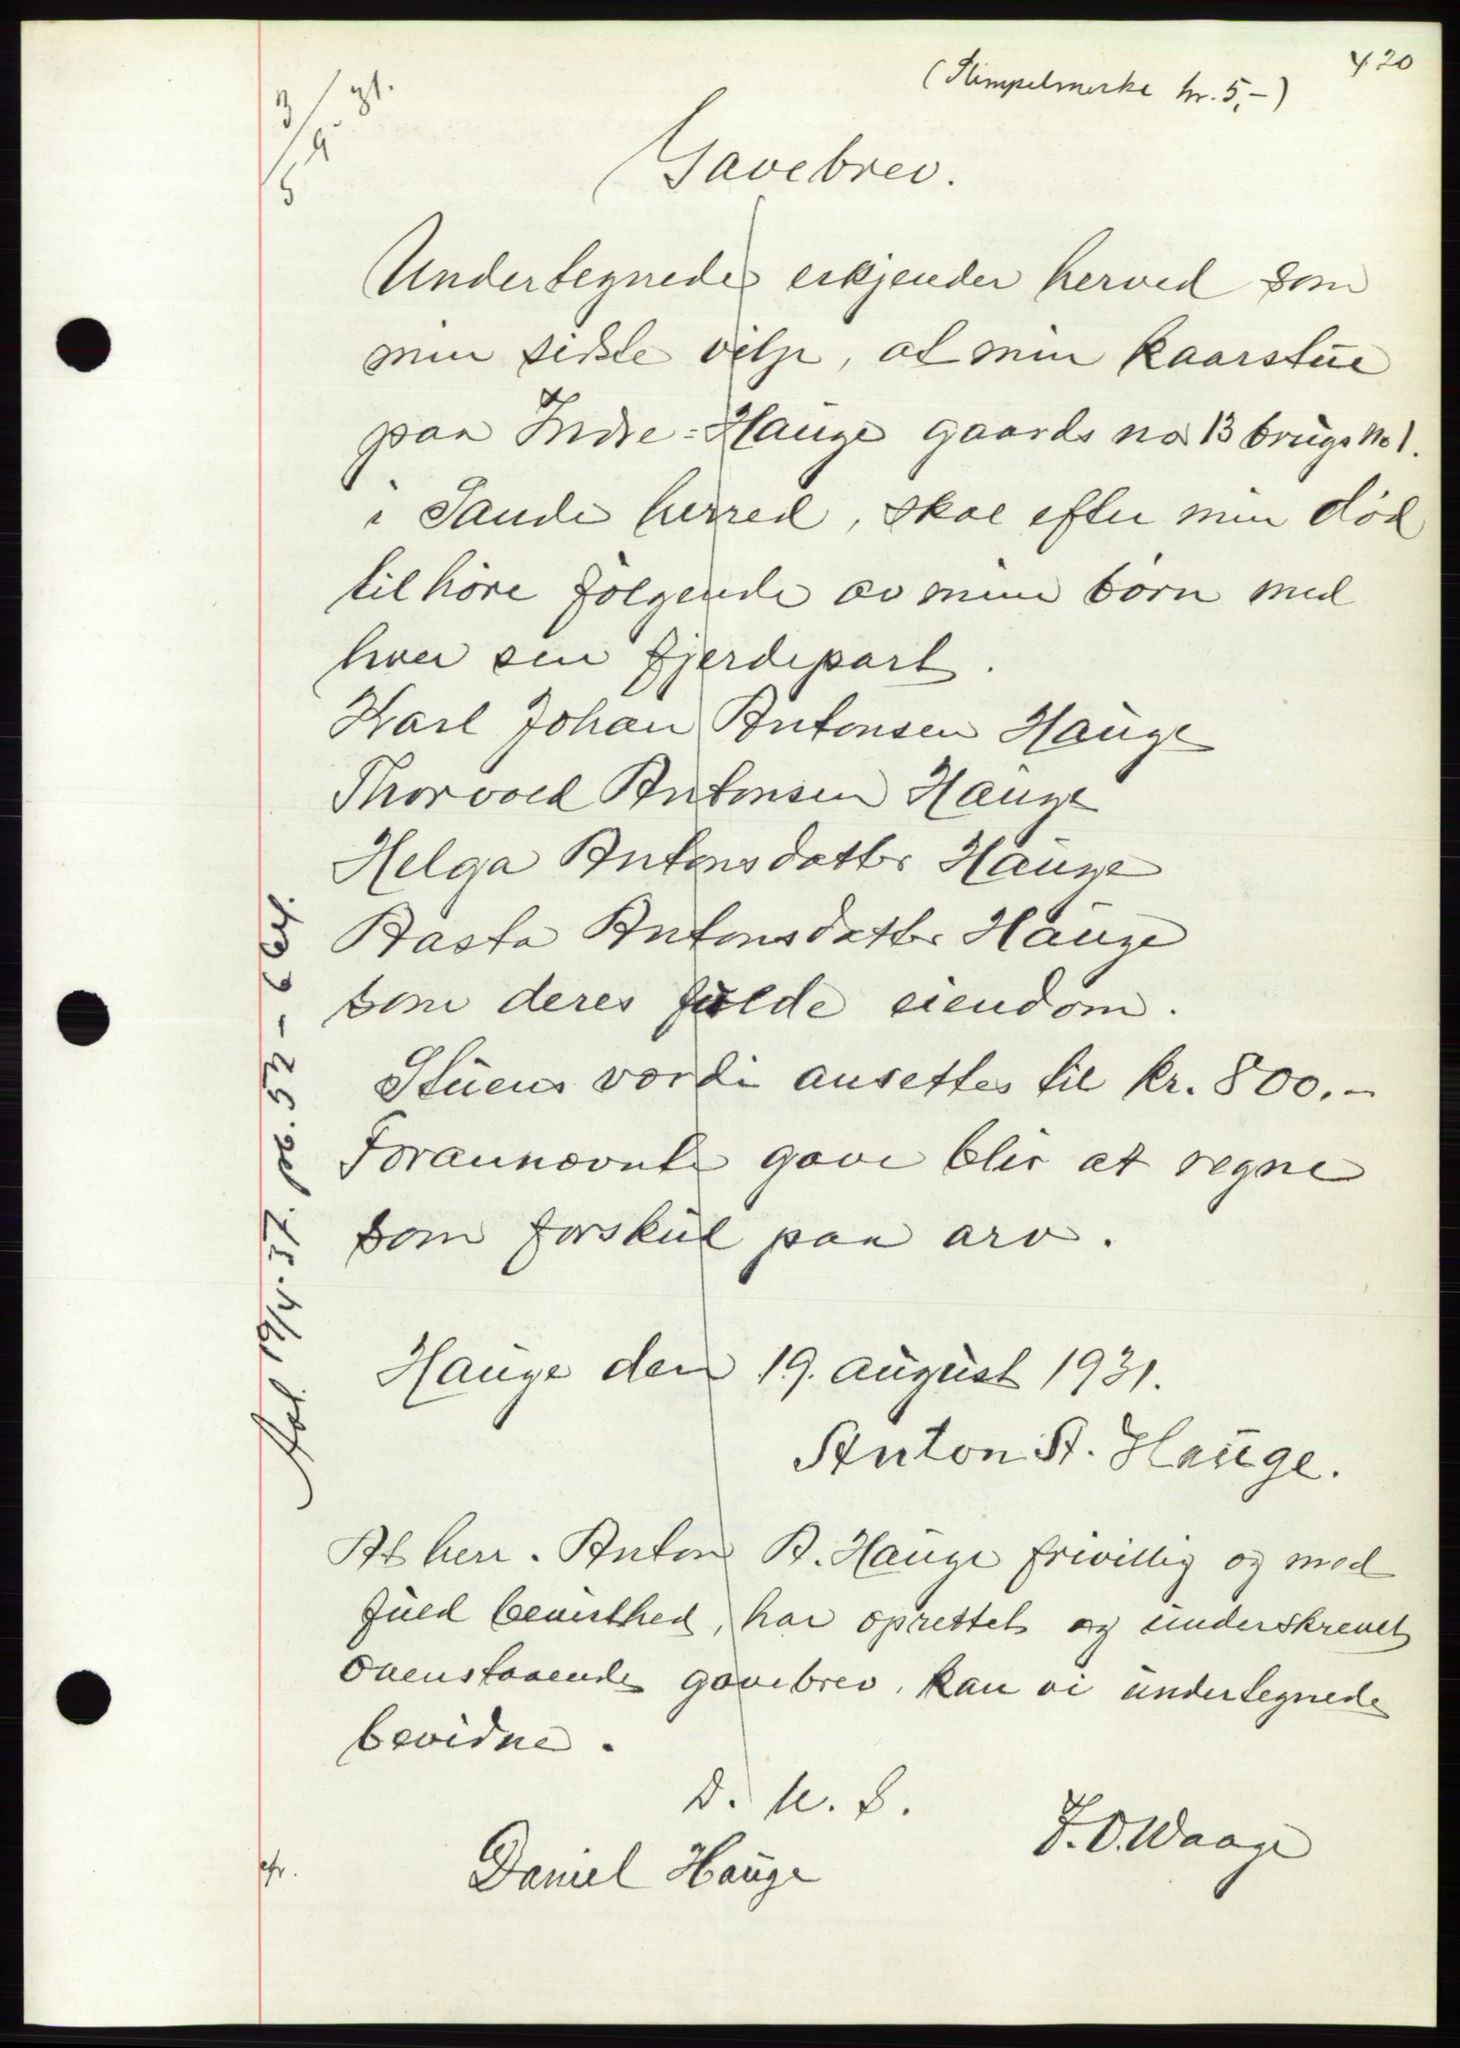 420
(Stempelmerke kr. 5,-)
3/9-31.
5
Gavebrev.
Undertegnede erkjender herved som
min sidste vilje, at min kaarstue
paa Indre-Hauge gaards no 13 brugs no 1.
i Sande herred, skal efter min død
tilhöre følgende av mine börn med
hver sin fjerdepart.
Karl Johan Antonsen Hauge
Thorvald Antonsen Hauge
Helga Antonsdatter Hauge
Aasta Antonsdatter Hauge
som deres fulde eiendom.
Stuens værdi ansettes til kr. 800.-
Forannævnte gave blir at regne
som forskud paa arv.
Hauge den 19. august 1931.
Anton A. Hauge.
At herr. Anton A. Hauge frivillig og med
fuld bevisthed, har oprettet og underskrevet
ovenstaaende gavebrev, kan vi undertegnede
bevidne.
D. u. s.
Daniel Hauge
J. O. Waage
Avl. 19/4-37. pb. 52 -
cfr.